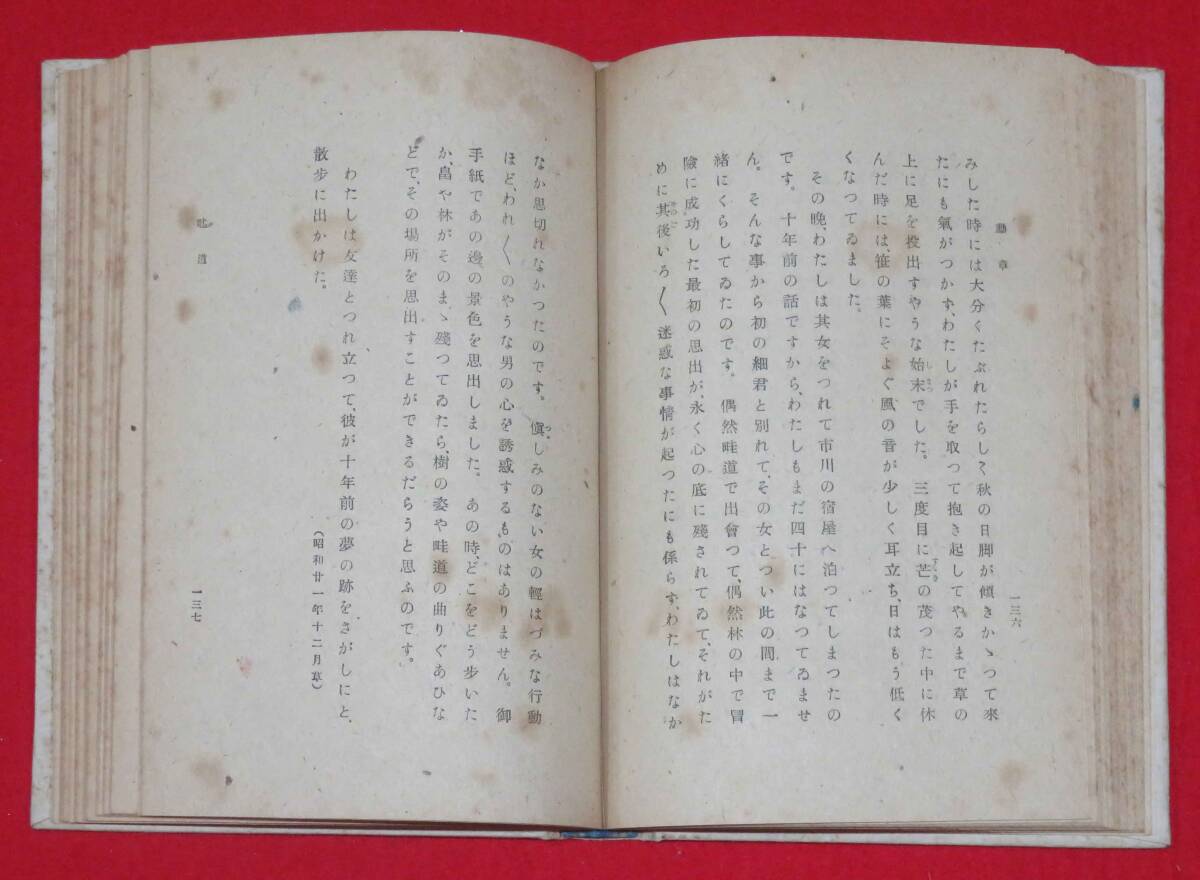 勲章
一三六
みした時には大分くたぶれたらしく秋の日脚が傾きかゝつて來
たにも氣がつかず、わたしが手を取つて抱き起してやるまで草の
上に足を投出すやうな始末でした。三度目に芒の茂つた中に休
んだ時には、笹の葉にそよぐ風の音が少しく耳立ち、日はもう低く
くなつてゐました。
その晩、わたしは其女をつれて市川の宿屋へ泊つてしまつたの
です。十年前の話ですから、わたしもまだ四十にはなつてゐませ
ん。そんな事から初の細君と別れて、その女とつい此の間まで一
緒にくらしてゐたのです。偶然畦道で出會つて、偶然林の中で冒
險に成功した最初の思出が、永く心の底に殘されてゐて、それがた
めに其後いろ〱迷惑な事情が起つたにも係らず、わたしはなか
なか思切れなかつたのです。愼しみのない女の輕はづみな行動
ほど、われ〱のやうな男の心を誘惑するものはありません。御
手紙であの邊の景色を思出しました。あの時、どこをどう歩いた
か、畠や林がそのまゝ殘つてゐたら、樹の姿や畦道の曲りぐあひな
どで、その場所を思出すことができるだらうと思ふのです。
わたしは友達とつれ立つて、彼が十年前の夢の跡を、さがしにと、
散歩に出かけた。
（昭和廿一年十二月草）
畦道
一三七